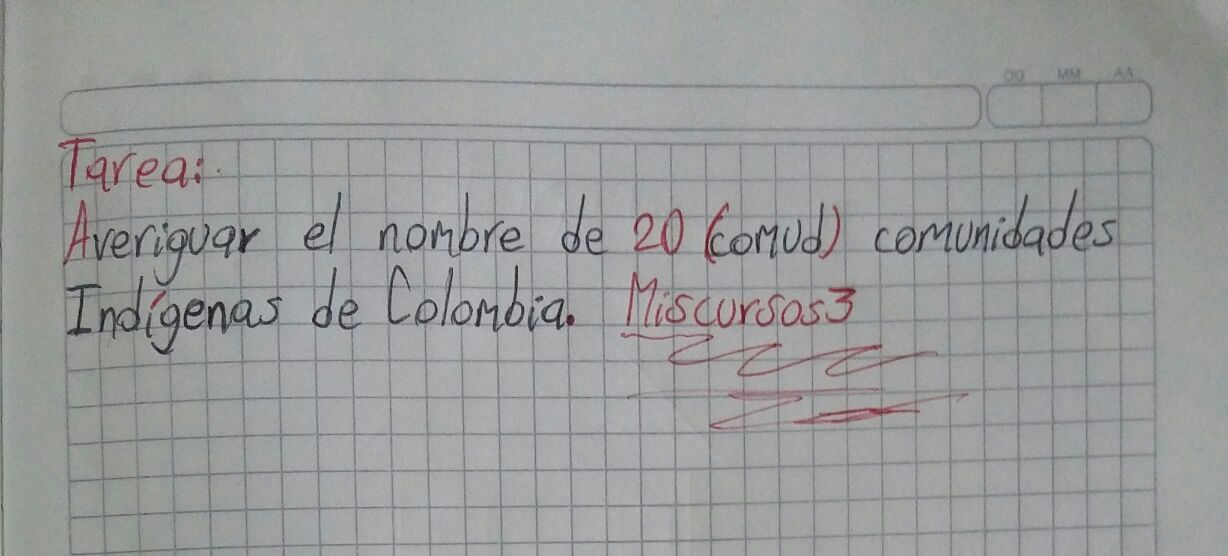 DD MM AA
Tarea:
Averiguar el nombre de 20 (comud) comunidades
Indígenas de Colombia. Miscursos3